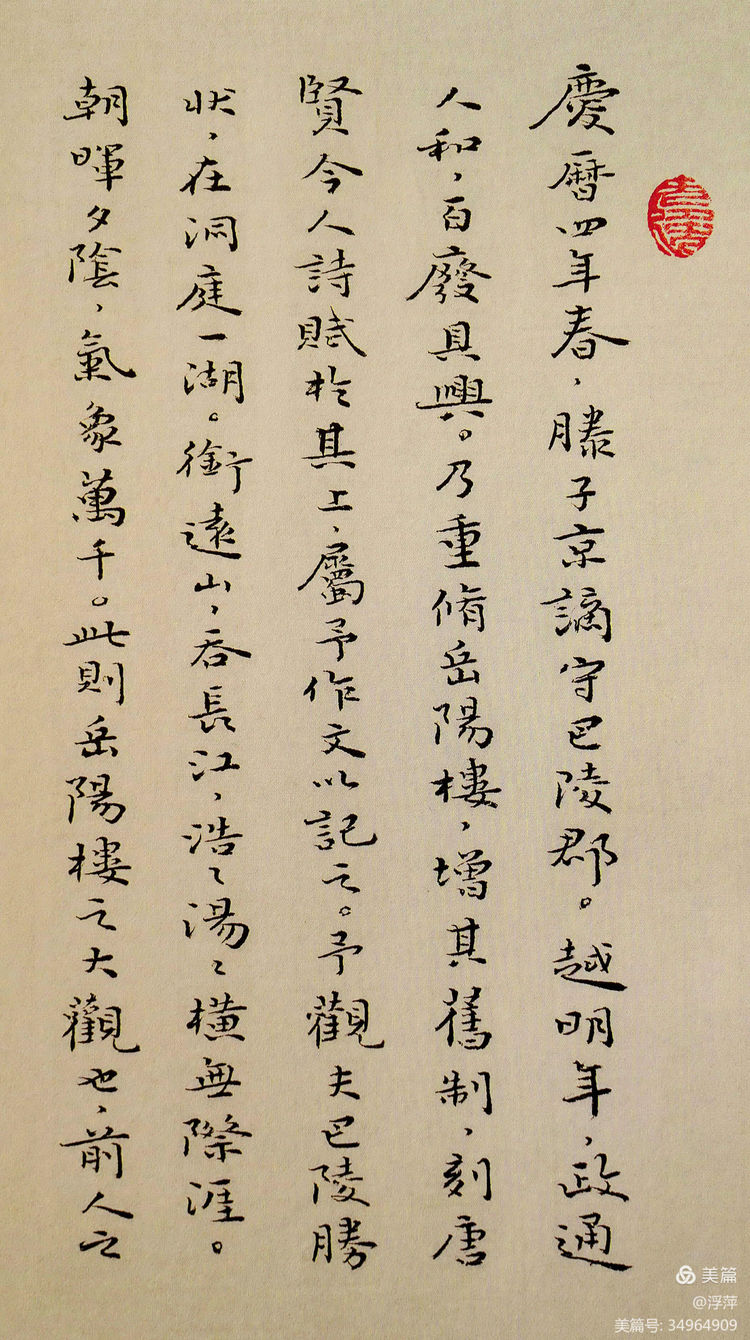 慶曆四年春，滕子京謫守巴陵郡。越明年，政通
人和，百廢具興。乃重脩岳陽樓，增其舊制，刻唐
賢今人詩賦於其上，屬予作文以記之。予觀夫巴陵勝
狀，在洞庭一湖。銜遠山，吞長江，浩〻湯〻橫無際涯。
朝暉夕陰，氣象萬千。此則岳陽樓之大觀也，前人之
美篇
@浮萍
美篇号: 34964909